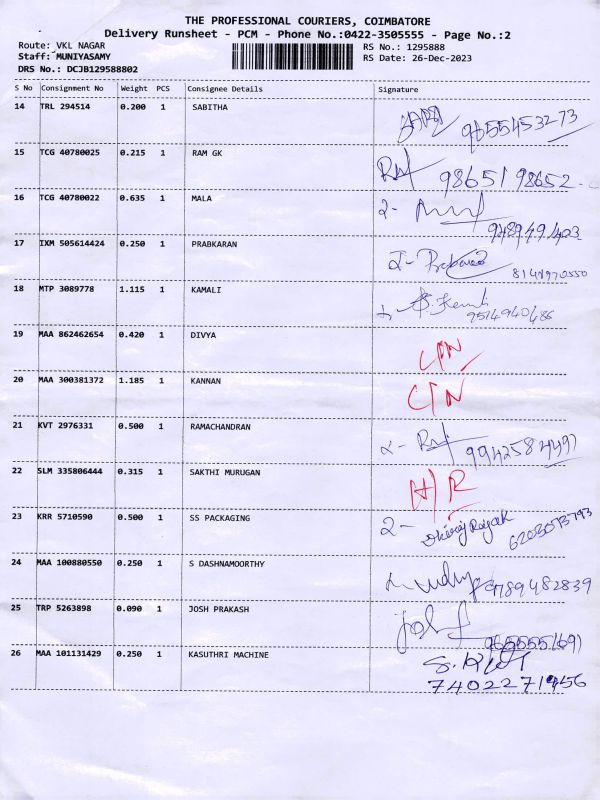 THE PROFESSIONAL COURIERS, COIMBATORE
Delivery Runsheet - PCM - Phone No.:0422-3505555 - Page No.:2
Route: VKL NAGAR RS No.: 1295888
Staff: MUNIYASAMY RS Date: 26-Dec-2023
DRS No.: DCJB129588802
S No Consignment No Weight PCS Consignee Details Signature
14 TRL 294514 0.200 1 SABITHA
9655453273
15 TCG 40780025 0.215 1 RAM GK
98651 98652
16 TCG 40780022 0.635 1 MALA
2-
17 IXM 505614424 0.250 1 PRABKARAN
2-
8141970550
18 MTP 3089778 1.115 1 KAMALI
9514940486
19 MAA 862462654 0.420 1 DIVYA
20 MAA 300381372 1.185 1 KANNAN
CTN
21 KVT 2976331 0.500 1 RAMACHANDRAN
2-
9942584491
22 SLM 335806444 0.315 1 SAKTHI MURUGAN
H/R
23 KRR 5710590 0.500 1 SS PACKAGING
2-
24 MAA 100880550 0.250 1 S DASHNAMOORTHY
9789482839
25 TRP 5263898 0.090 1 JOSH PRAKASH
26 MAA 101131429 0.250 1 KASUTHRI MACHINE
7402271956